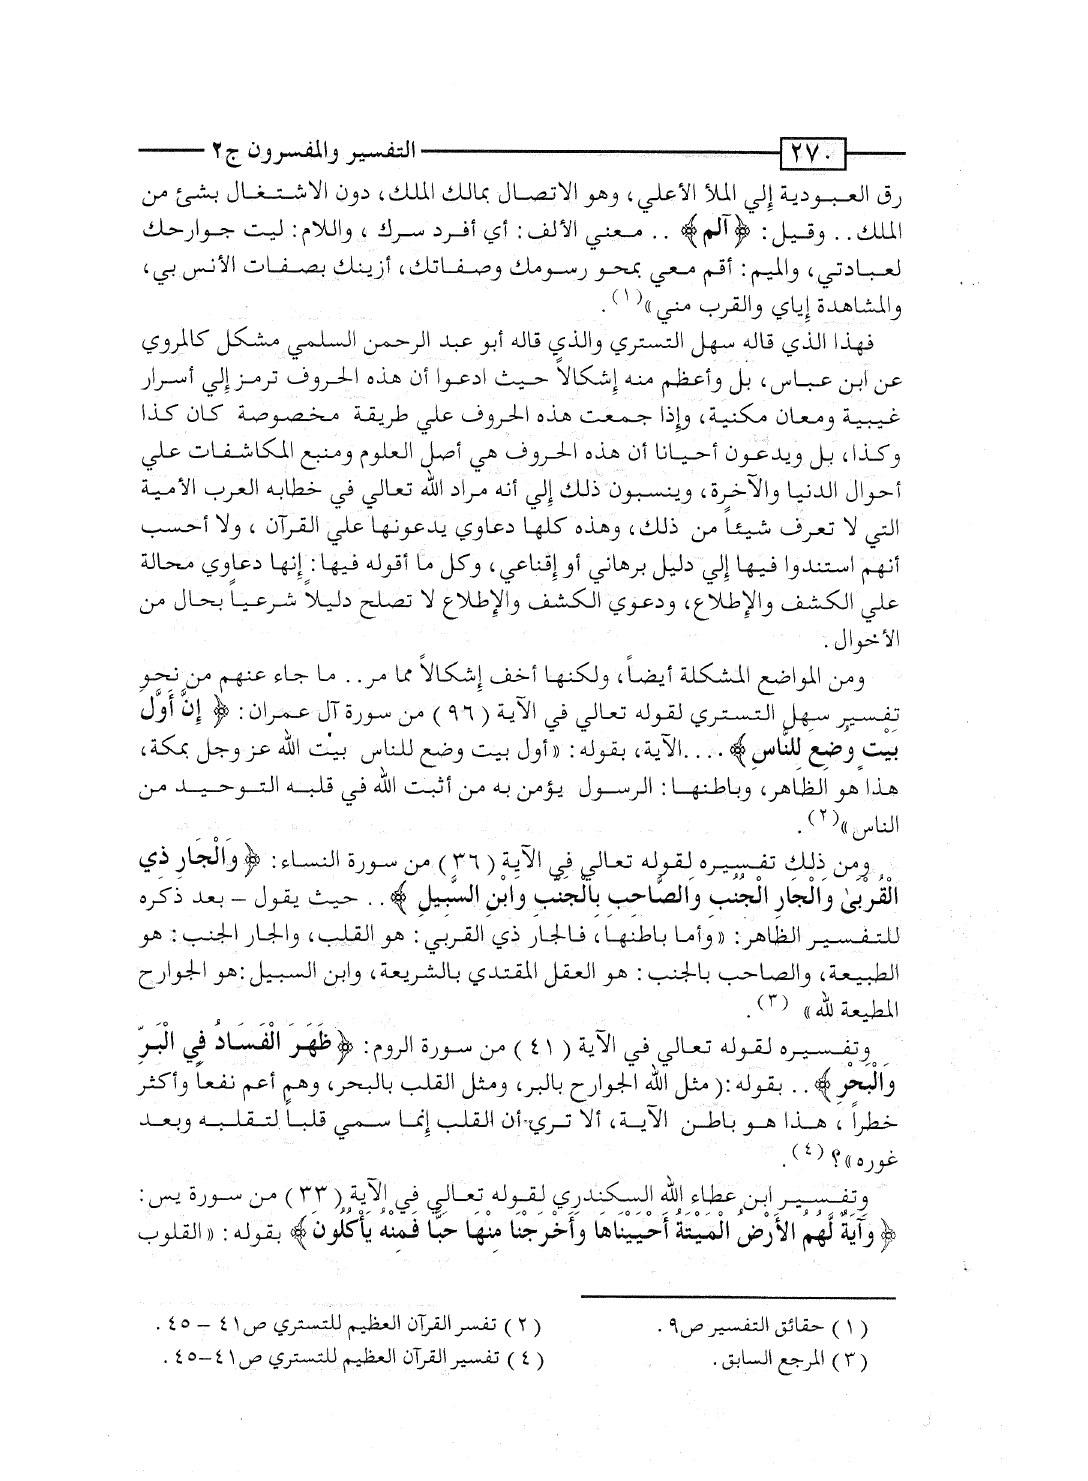 ٢٧٠ التفسير والمفسرون ج٢
رق العبودية إلي الملأ الأعلي، وهو الاتصال بمالك الملك، دون الاشتغال بشئ من
الملك.. وقيل: ﴿آلم﴾ .. معني الألف: أي أفرد سرك، واللام: ليت جوارحك
لعبادتي، والميم: أقم معي بمحو رسومك وصفاتك، أزينك بصفات الأنس بي،
والمشاهدة إياي والقرب مني»(١).
فهذا الذي قاله سهل التستري والذي قاله أبو عبد الرحمن السلمي مشكل كالمروي
عن ابن عباس، بل وأعظم منه إشكالاً حيث ادعوا أن هذه الحروف ترمز إلي أسرار
غيبية ومعان مكنية، وإذا جمعت هذه الحروف علي طريقة مخصوصة كان كذا
وكذا، بل ويدعون أحيانا أن هذه الحروف هي أصل العلوم ومنبع المكاشفات علي
أحوال الدنيا والآخرة، وينسبون ذلك إلي أنه مراد الله تعالي في خطابه العرب الأمية
التي لا تعرف شيئاً من ذلك، وهذه كلها دعاوي يدعونها علي القرآن، ولا أحسب
أنهم استندوا فيها إلي دليل برهاني أو إقناعي، وكل ما أقوله فيها: إنها دعاوي محالة
علي الكشف والإطلاع، ودعوي الكشف والإطلاع لا تصلح دليلاً شرعياً بحال من
الأخوال.
ومن المواضع المشكلة أيضاً، ولكنها أخف إشكالاً مما مر.. ما جاء عنهم من نحو
تفسير سهل التستري لقوله تعالي في الآية (٩٦) من سورة آل عمران: ﴿ إِنَّ أَوَّلَ
بَيْتٍ وُضِعَ لِلنَّاسِ﴾ ....الآية، بقوله: «أول بيت وضع للناس بيت الله عز وجل بمكة،
هذا هو الظاهر، وباطنها: الرسول يؤمن به من أثبت الله في قلبه التوحيد من
الناس»(٢).
ومن ذلك تفسيره لقوله تعالي في الآية (٣٦) من سورة النساء: ﴿وَالْجَارِ ذِي
الْقُرْبَىٰ وَالْجَارِ الْجُنُبِ وَالصَّاحِبِ بِالْجَنْبِ وَابْنِ السَّبِيلِ ﴾.. حيث يقول - بعد ذكره
للتفسير الظاهر: «وأما باطنها، فالجار ذي القربي: هو القلب، والجار الجنب: هو
الطبيعة، والصاحب بالجنب: هو العقل المقتدي بالشريعة، وابن السبيل:هو الجوارح
المطيعة لله» (٣).
وتفسيره لقوله تعالي في الآية (٤١) من سورة الروم: ﴿ظَهَرَ الْفَسَادُ فِي الْبَرِّ
وَالْبَحْرِ﴾.. بقوله:(مثل الله الجوارح بالبر، ومثل القلب بالبحر، وهم أعم نفعاً وأكثر
خطراً، هذا هو باطن الآية، ألا تري أن القلب إنما سمي قلباً لتقلبه وبعد
غوره»؟(٤).
وتفسير ابن عطاء الله السكندري لقوله تعالي في الآية (٣٣) من سورة يس:
﴿وَآيَةٌ لَّهُمُ الأَرْضُ الْمَيْتَةُ أَحْيَيْنَاهَا وَأَخْرَجْنَا مِنْهَا حَبًّا فَمِنْهُ يَأْكُلُونَ﴾ بقوله: «القلوب
(١) حقائق التفسير ص٩. (٢) تفسر القرآن العظيم للتستري ص٤١ - ٤٥.
(٣) المرجع السابق. (٤) تفسير القرآن العظيم للتستري ص٤١-٤٥.